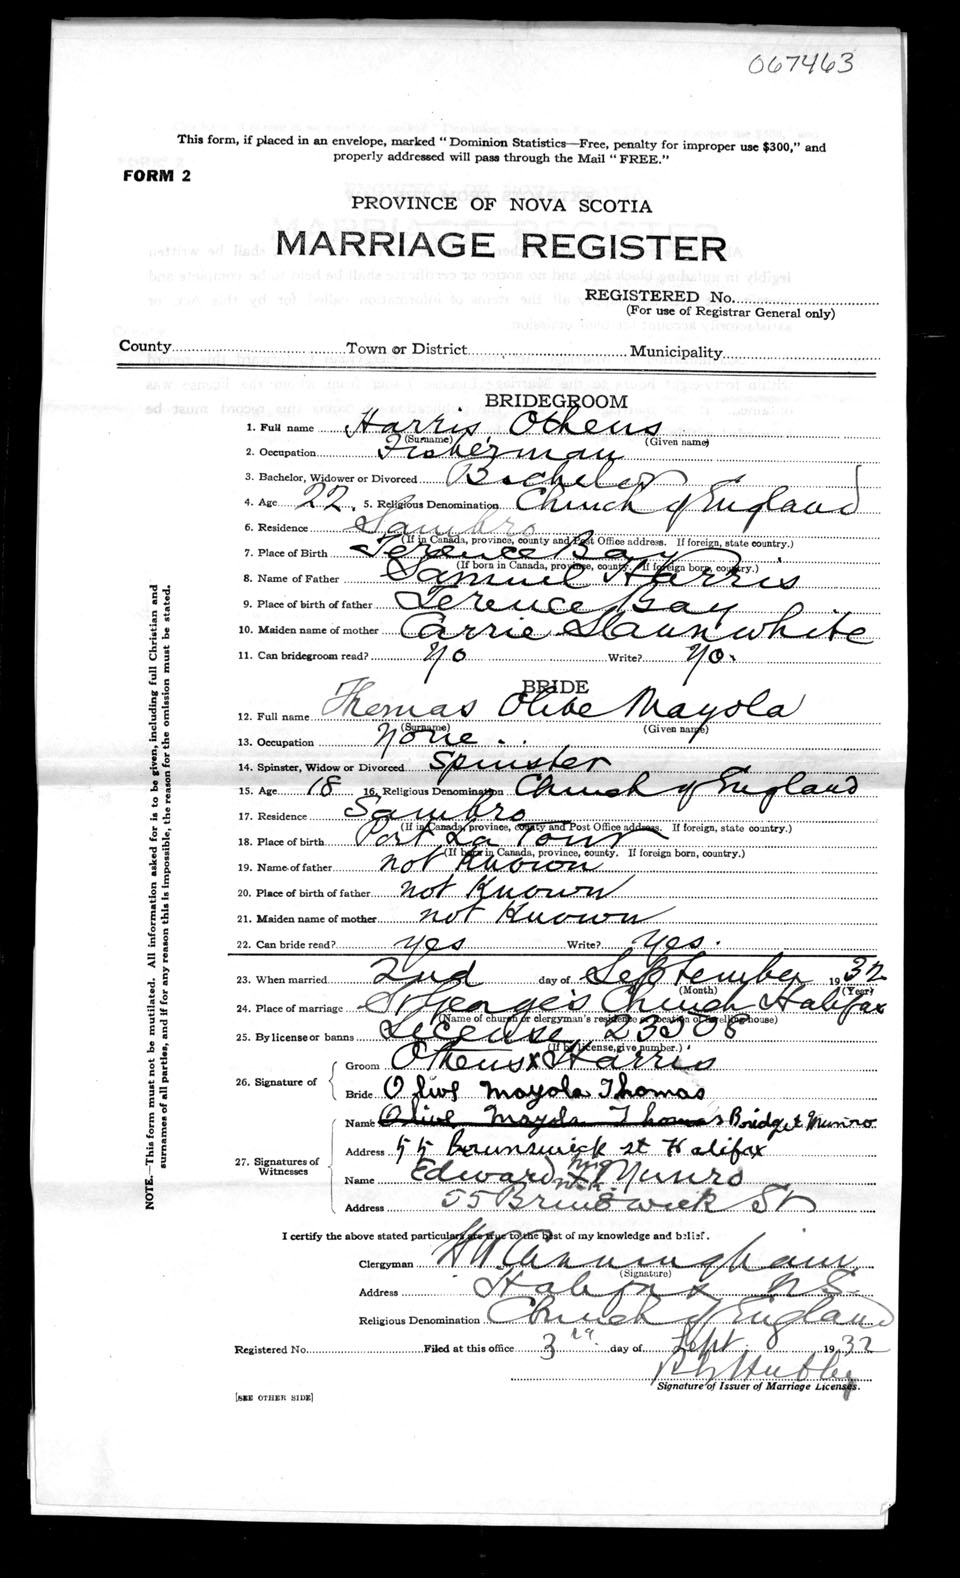 067463
This form, if placed in an envelope, marked "Dominion Statistics—Free, penalty for improper use $300," and
properly addressed will pass through the Mail "FREE."
FORM 2
PROVINCE OF NOVA SCOTIA
MARRIAGE REGISTER
REGISTERED No.
(For use of Registrar General only)
County Town or District Municipality
BRIDEGROOM
1. Full name Harris, Othens
(Surname) (Given name)
2. Occupation Fisherman
3. Bachelor, Widower or Divorced Bachelor
4. Age 22. 5. Religious Denomination Church of England
6. Residence Sambro
(If in Canada, province, county and Post Office address. If foreign, state country.)
7. Place of Birth Terence Bay
(If born in Canada, province, county. If foreign born, country.)
8. Name of Father Samuel Harris
9. Place of birth of father Terence Bay
10. Maiden name of mother Carrie Slaunwhite
11. Can bridegroom read? No Write? No.
BRIDE
12. Full name Thomas Olive Mayola
(Surname) (Given name)
13. Occupation None
14. Spinster, Widow or Divorced Spinster
15. Age 18 16. Religious Denomination Church of England
17. Residence Sambro
(If in Canada, province, county and Post Office address. If foreign, state country.)
18. Place of birth Port La Tour
(If born in Canada, province, county. If foreign born, country.)
19. Name of father not Known
20. Place of birth of father not Known
21. Maiden name of mother not Known
22. Can bride read? yes Write? yes.
23. When married 2nd day of September 1932
(Month) (Year)
24. Place of marriage St George's Church Halifax
(Name of church or clergyman's residence or location of dwelling house)
25. By license or banns License
(If by license, give number.)
26. Signature of
Groom Othens x Harris
Bride Olive Mayola Thomas
27. Signatures of Witnesses
Name Olive Mayola Thomas Bridget Munro
Address 55 Brunswick st Halifax
Name Edward Munro
Address 55 Brunswick St
I certify the above stated particulars are true to the best of my knowledge and belief.
Clergyman Cunningham
(Signature)
Address Halifax N.S.
Religious Denomination Church of England
Registered No. Filed at this office 3rd day of Sept. 1932
Hubley
Signature of Issuer of Marriage Licenses.
[SEE OTHER SIDE]
NOTE.—This form must not be mutilated. All information asked for is to be given, including full Christian and
surnames of all parties, and if for any reason this is impossible, the reason for the omission must be stated.